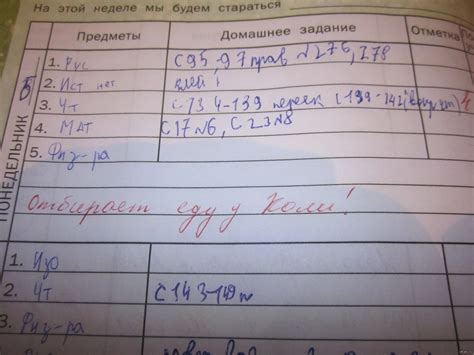 На этой неделе мы будем стараться
Предметы Домашнее задание Отметка
ПОНЕДЕЛЬНИК
1. Рус С 95-97 прав №276, 278
2. Ист нет
3. Чт С 134-139 перек
4. Мат С 17 №6, С 23 №8
5. Физ-ра
Отбирает еду у Коли!
1. Изо
2. Чт С 143-149
3. Физ-ра